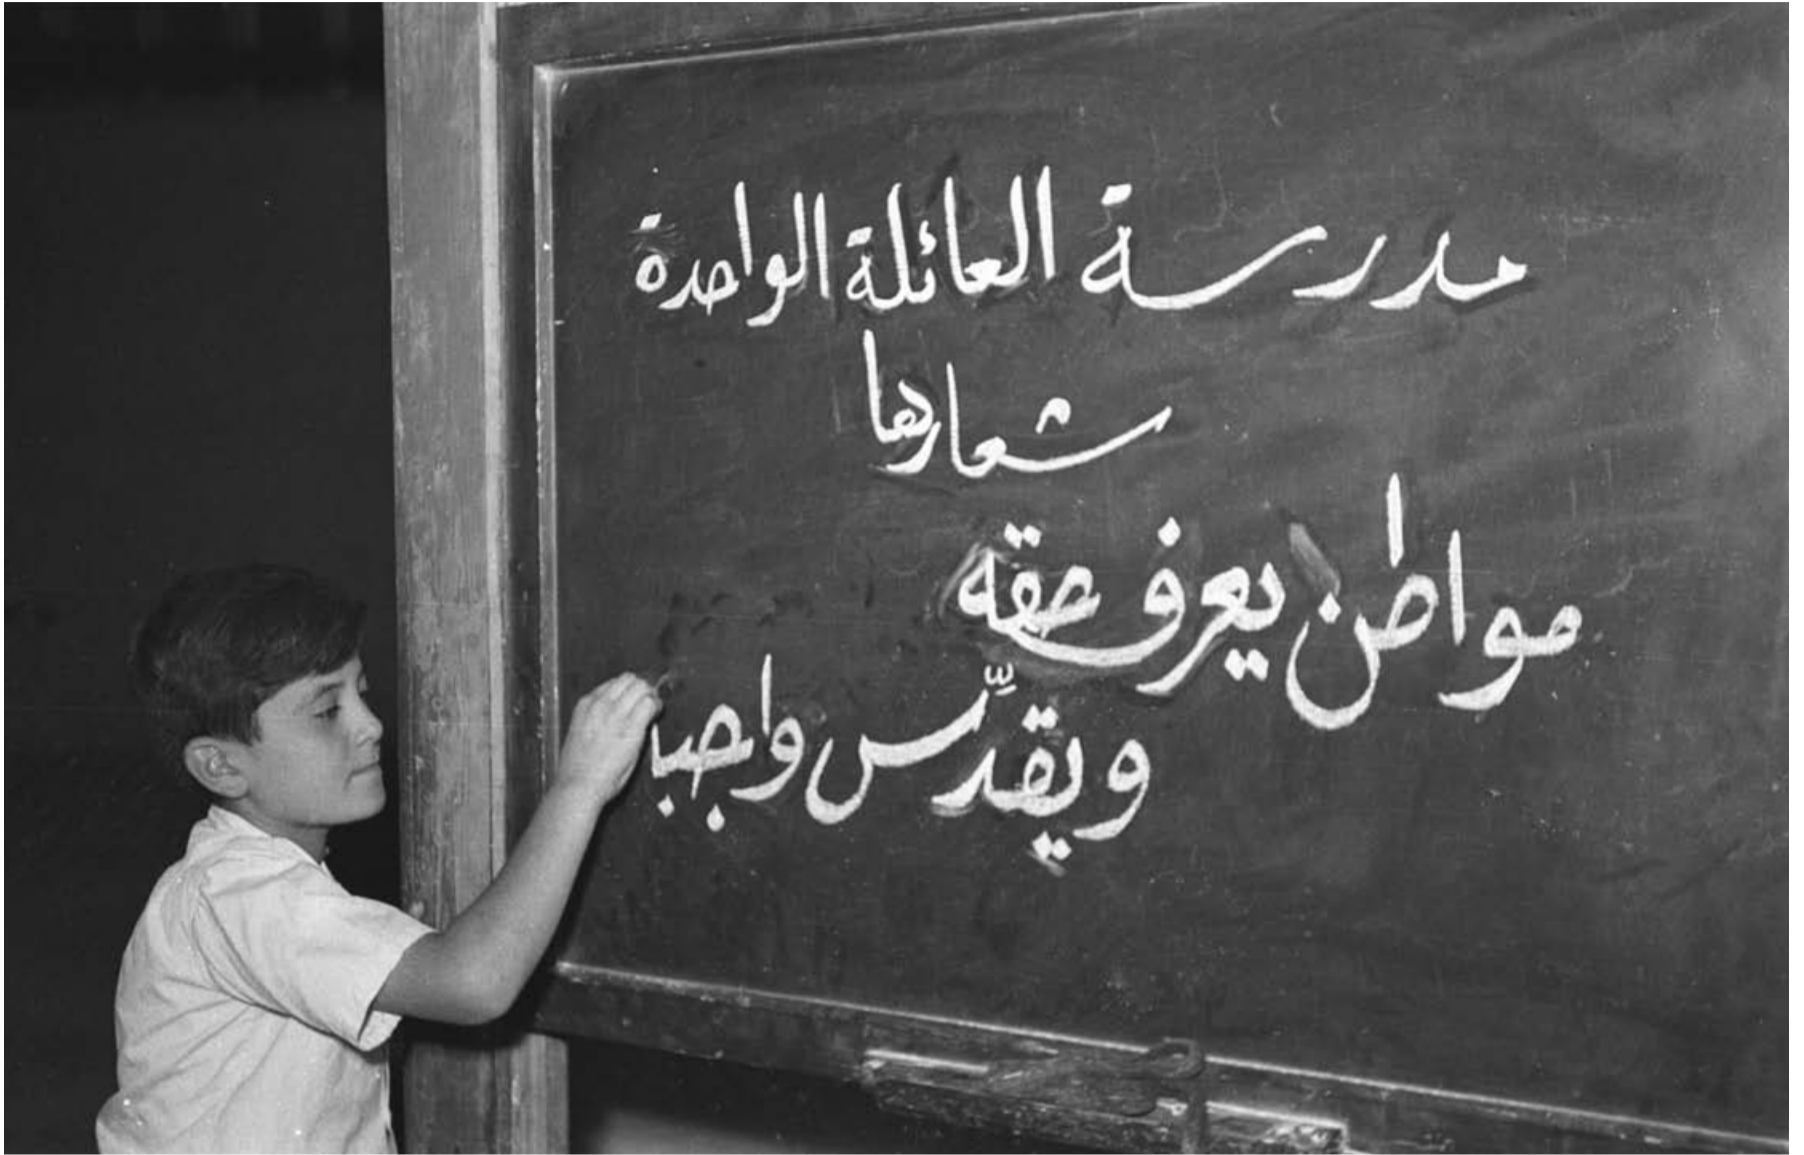 مدرسة العائلة الواحدة
شعارها
مواطن يعرف حقه
ويقدّس واجبا